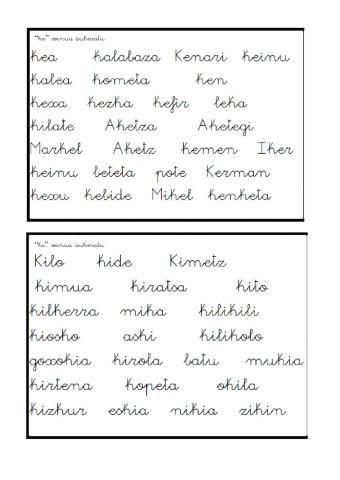 "ke" soinua aukeratu
kea kalabaza Kenari keinu
kalea kometa ken
kexa kezka kefir leka
kilate Aketza Aketegi
Markel Aketz kemen Iker
keinu beteta pote Kerman
kexu kebide Mikel kenketa
"ki" soinua aukeratu
Kilo kide Kimetz
kimua kiratsa kito
kilkerra mika kilikili
kiosko aski kilikolo
goxokia kirola batu mukia
kirtena kopeta okila
kizkur eskia nikia zikin